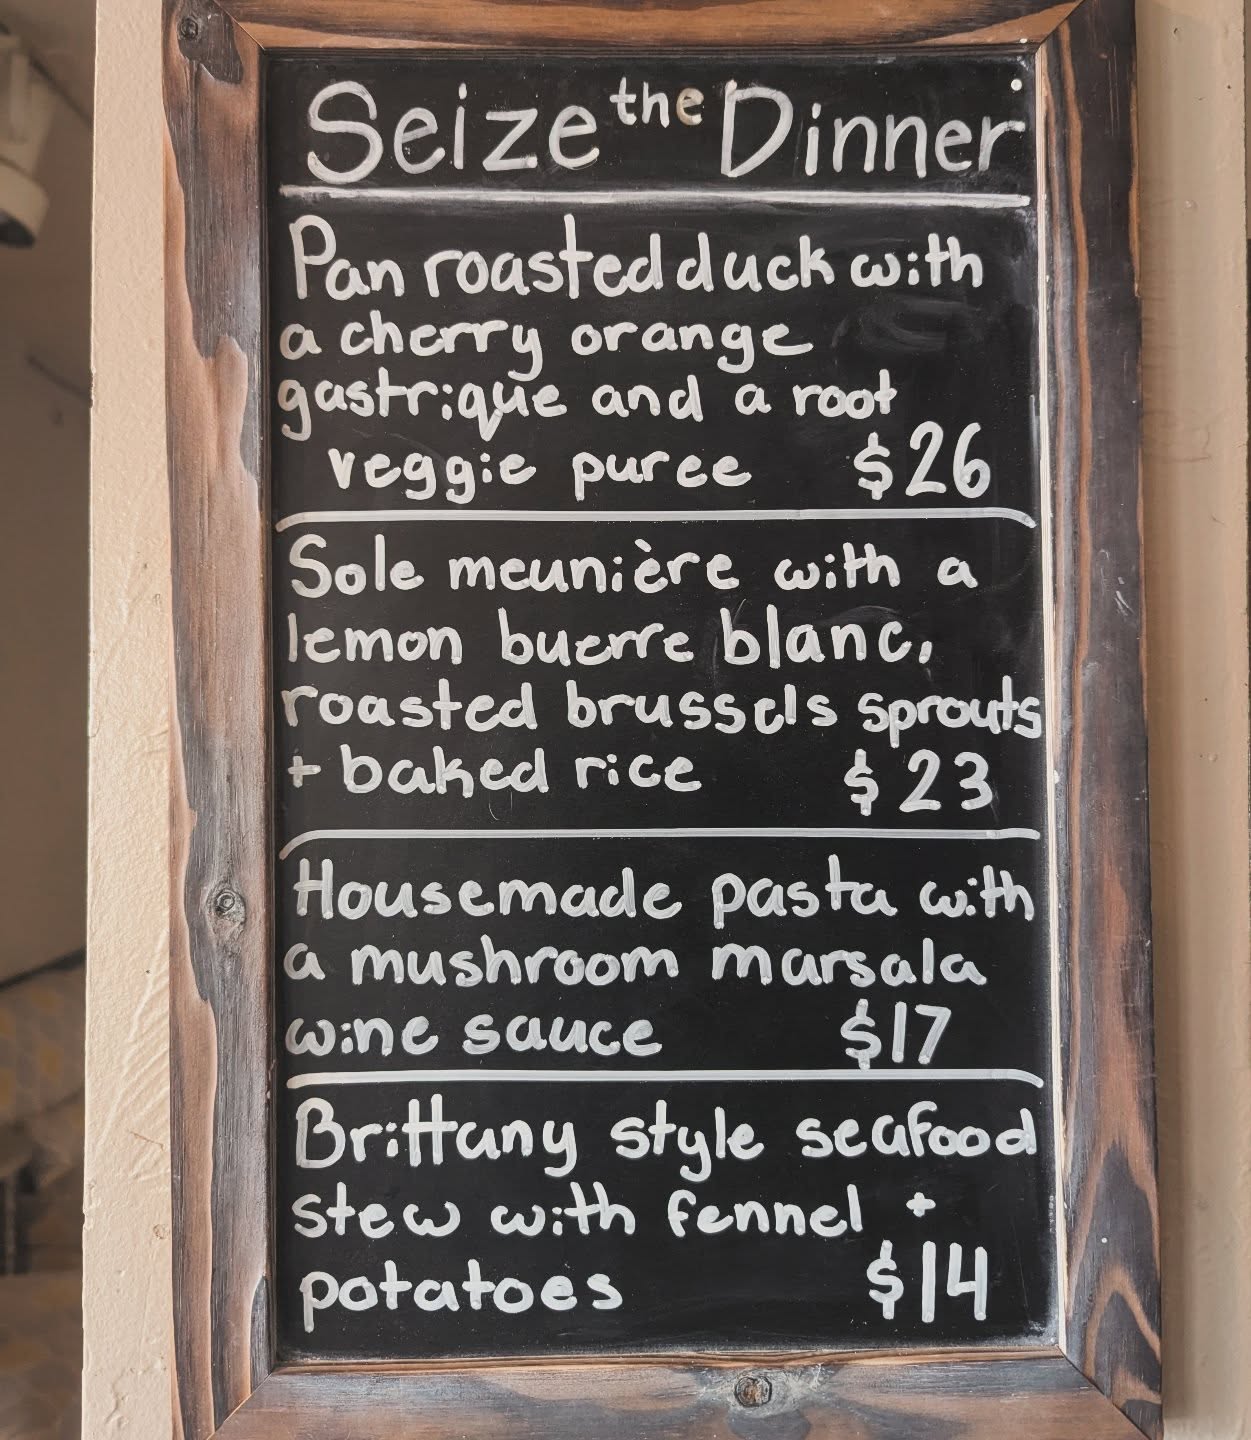 Seize the Dinner
Pan roasted duck with
a cherry orange
gastrique and a root
veggie puree $26
Sole meunière with a
lemon buerre blanc,
roasted brussels sprouts
+ baked rice $23
Housemade pasta with
a mushroom marsala
wine sauce $17
Brittany style seafood
stew with fennel +
potatoes $14